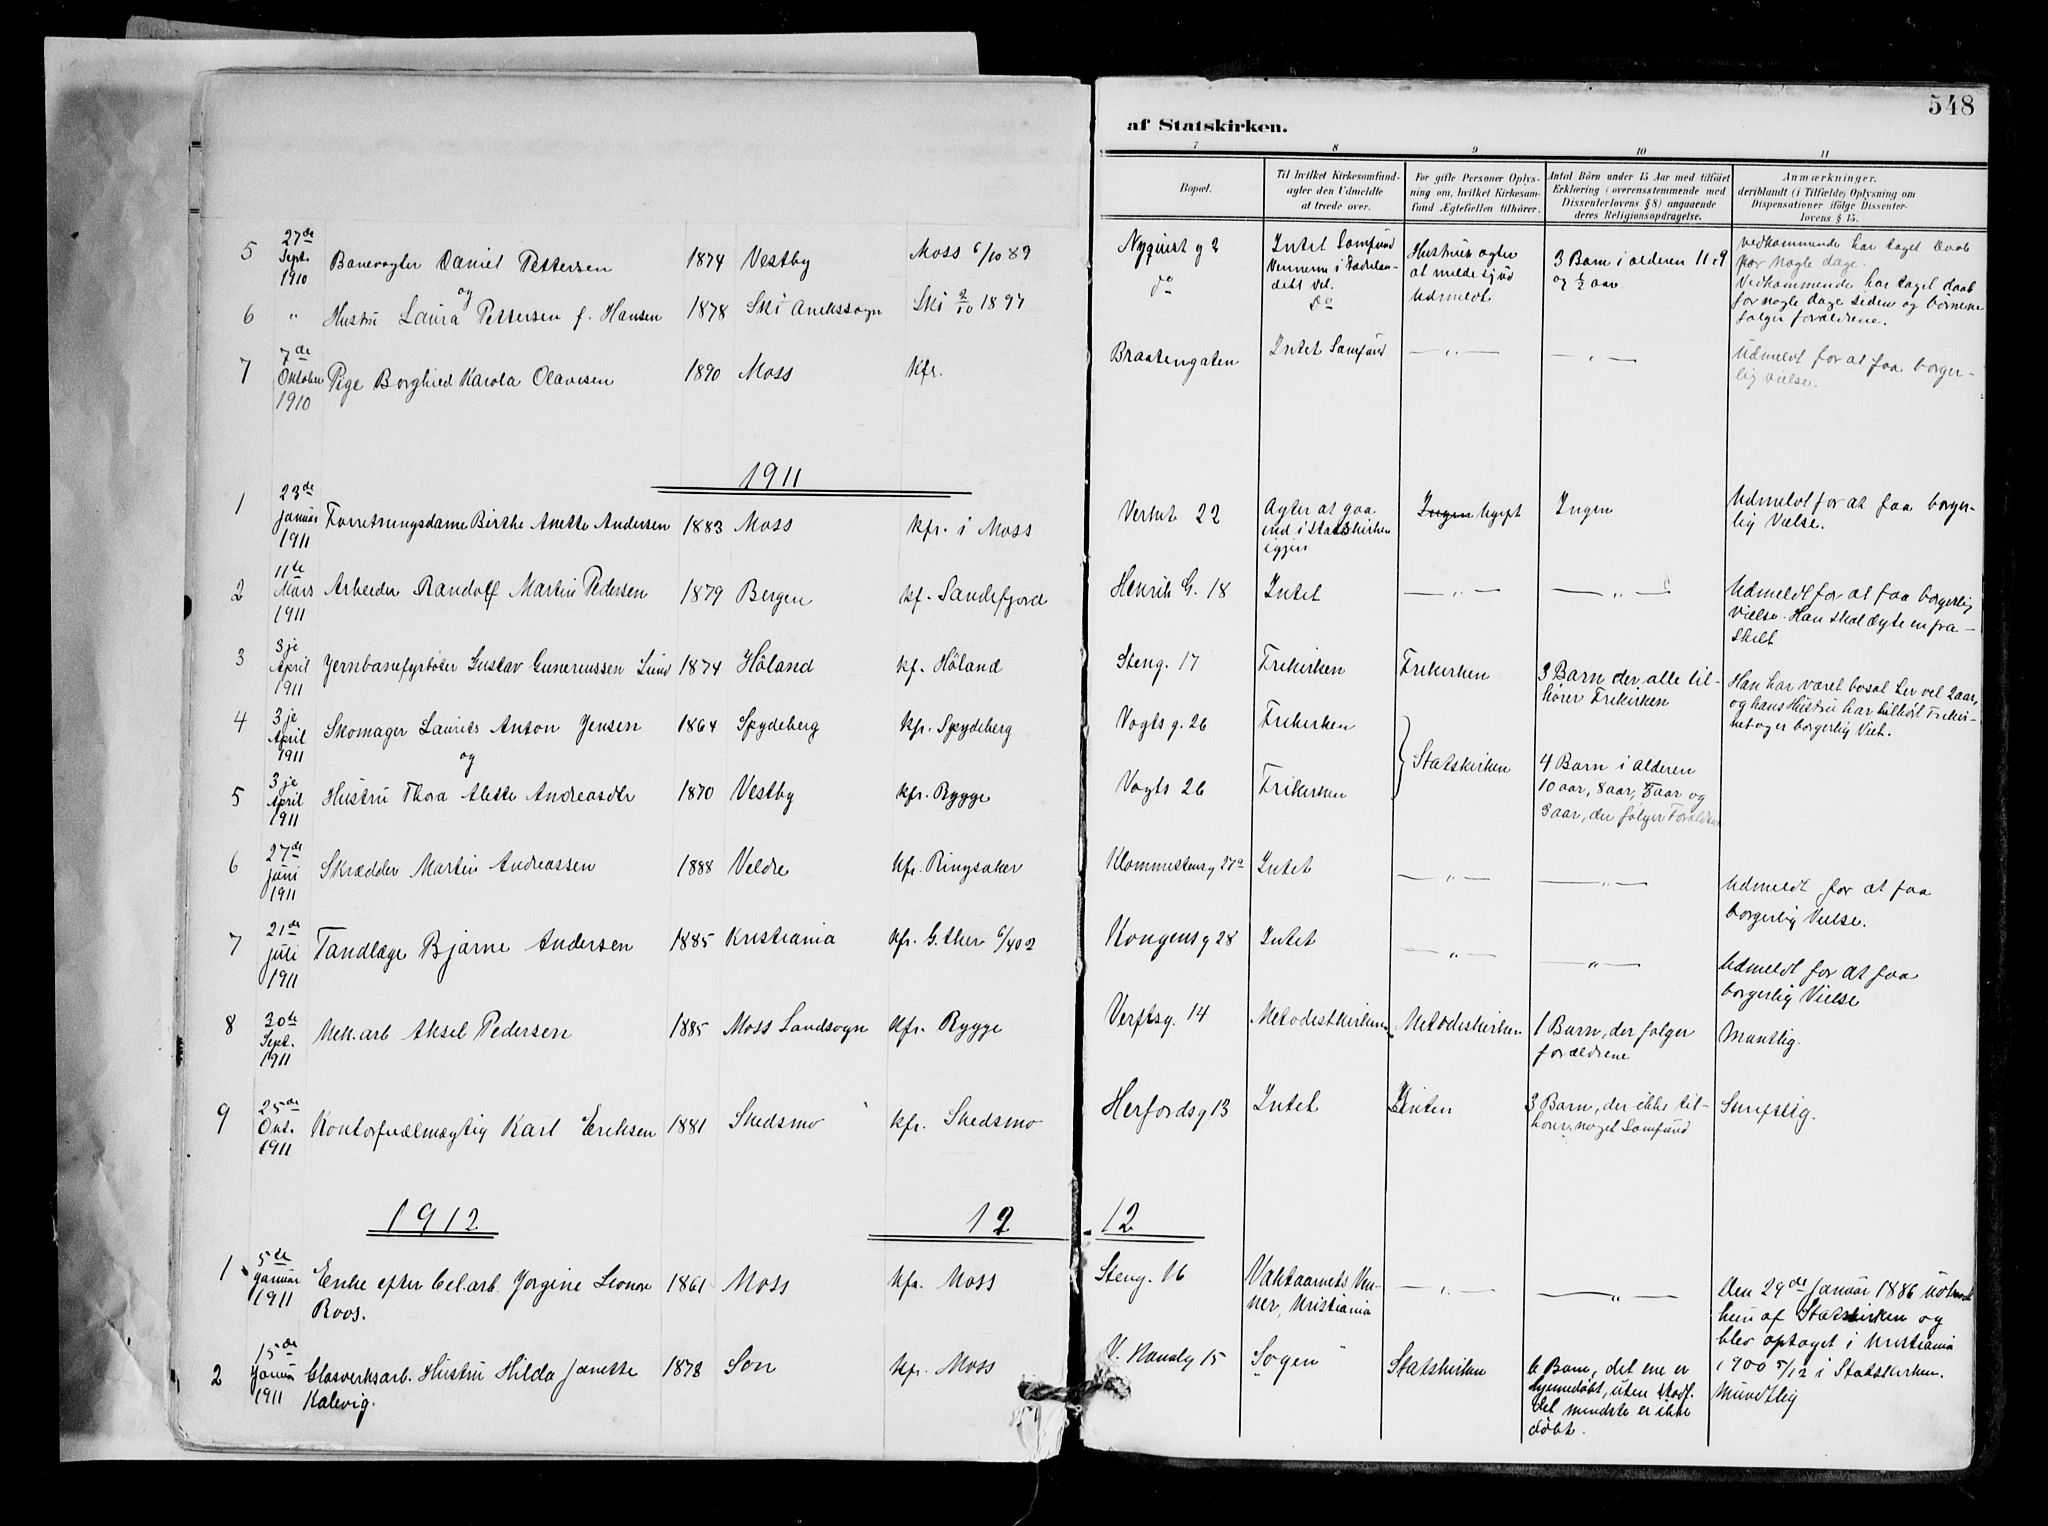 548
af Statskirken.
7 8 9 10 11
Bopæl.
Til hvilket Kirkesamfund-
agter den Udmeldte
at træde over.
For gifte Personer Oplys-
ning om, hvilket Kirkesam-
fund Ægtefællen tilhører.
Antal Børn under 15 Aar med tilføiet
Erklæring (overensstemmende med
Dissenterlovens § 8) angaaende
deres Religionsopdragelse.
Anmærkninger,
deriblandt (i Tilfælde) Oplysning om
Dispensationer ifølge Dissenter-
lovens § 15.
5 27de Sept. 1910 Banevogter Daniel Pettersen 1874 Vestby Moss 6/10 89 Nyquist g 2 Intet Samfund
Vennerne i Hustrus agter
at melde sjud
Udmeldt
3 Barn i alderen 11, 9
og ½ aar
Vedkommende har taget Daab
for nogle dage.
og
6 " Hustru Laura Pettersen f. Hansen 1878 Ski Anekssogn Ski 2/10 1897 do Do
Vedkommende har taget daab
for nogle dage siden og børnene
følger forældrene.
7 7de Oktober 1910 Pige Borghild Karola Olavesen 1890 Moss Kfr. Braatengaten Intet Samfund — " — — " —
Udmeldt for at faa borger-
lig vielse.
1911
1 23de Januar 1911 Forretningsdame Birthe Anette Andersen 1883 Moss Kfr. i Moss 22
Agter at gaa
ind i Statskirken
igjen
Ingen Ugift Ingen
Udmeldt for at faa borger-
lig Vielse.
2 11de Mars 1911 Arbeider Randolf Martin Pedersen 1879 Bergen Kf. Sandefjord Henrik G. 18 Intet — " — — " —
Udmeldt for at faa borgerlig
vielse. Han skal ægte en fra-
skilt
3 3je April 1911 Jernbanefyrbøter Gustav Gunerussen Lund 1874 Høland Kf. Høland Steng. 17 Frikirken Frikirken
3 Barn der alle til-
hører Frikirken
Han har været bosat her vel 2 aar,
og hans Hustru har tilhørt Frikir-
borgerlig Viet.
4 3je April 1911 Skomager Laurits Anton Jensen 1864 Spydeberg Kfr. Spydeberg Vogts g. 26 Frikirken
og
Statskirken
5 3je April 1911 Hustru Thora Alette Andreasdtr 1870 Vestby Kfr. Rygge Vogts 26 Frikirken
4 Barn i Alderen
10 aar, 8 aar, 5 aar og
3 aar, der følger Forældrene
6 27de Juni 1911 Skrædder Martin Andreassen 1888 Veldre Kfr. Ringsaker 27a Intet — " — — " —
Udmeldt for at faa
borgerlig Vielse.
7 21de Juli 1911 Tandlæge Bjarne Andersen 1885 Kristiania Kfr. G. Aker Kongensg 28 Intet — " — — " —
Udmeldt for at faa
borgerlig Vielse
8 30de Sept. 1911 Mek. arb. Aksel Pedersen 1885 Moss Landsogn Kfr. Rygge Verftsg. 14 Metodistkirken Metodiskirken
1 Barn, der følger
forældrene
Muntlig.
9 25de Okt. 1911 Kontorfuldmægtig Karl Eriksen 1881 Skedsmo Kfr. Skedsmo Herfordsg 13 Intet Inten
3 Barn, der ikke til-
hører noget Samfund
Skriftlig.
1912 12 12
1 5de Januar 1911 Enke efter Cel.arb. Jørgine Leonore
Roos.
1861 Moss Kfr. Moss Steng. 16
Vaktaarnets Ven-
ner, Kristiania
— " — — " —
Den 29de Januar 1886
hun af Statskirken og
blev optaget i Kristiania
1900 5/12 i Statskirken.
2 15de Januar 1911 Glasverksarb. Hustru Hilda Janette
Kalevig.
1878 Son Kfr. Moss V. Kanalg 15 "Ingen" Statskirken
6 Barn, det ene er
hjemmedøbt, uten
det mindste er ikke
døbt.
Mundtlig